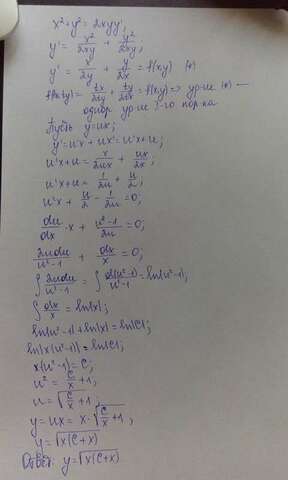 x²+y² = 2xyy';
y' = x²/2xy + y²/2xy;
y' = x/2y + y/2x = f(x,y) (*)
f(tx,ty) = tx/2ty + ty/2tx = f(x,y) => ур-ие (*) —
однор ур-ие 1-го пор-ка
Пусть y=ux;
y' = u'x + ux' = u'x+u;
u'x+u = x/2ux + ux/2x;
u'x+u = 1/2u + u/2;
u'x + u/2 - 1/2u = 0;
du/dx · x + u²-1/2u = 0;
2udu/u²-1 + dx/x = 0;
∫ 2udu/u²-1 = ∫ d(u²-1)/u²-1 = ln|u²-1|;
∫ dx/x = ln|x|;
ln|u²-1| + ln|x| = ln|C|;
ln|x(u²-1)| = ln|C|;
x(u²-1) = C;
u² = C/x + 1;
u = √(C/x + 1);
y = ux = x·√(C/x + 1);
y = √(x(C+x))
Ответ: y = √(x(C+x))